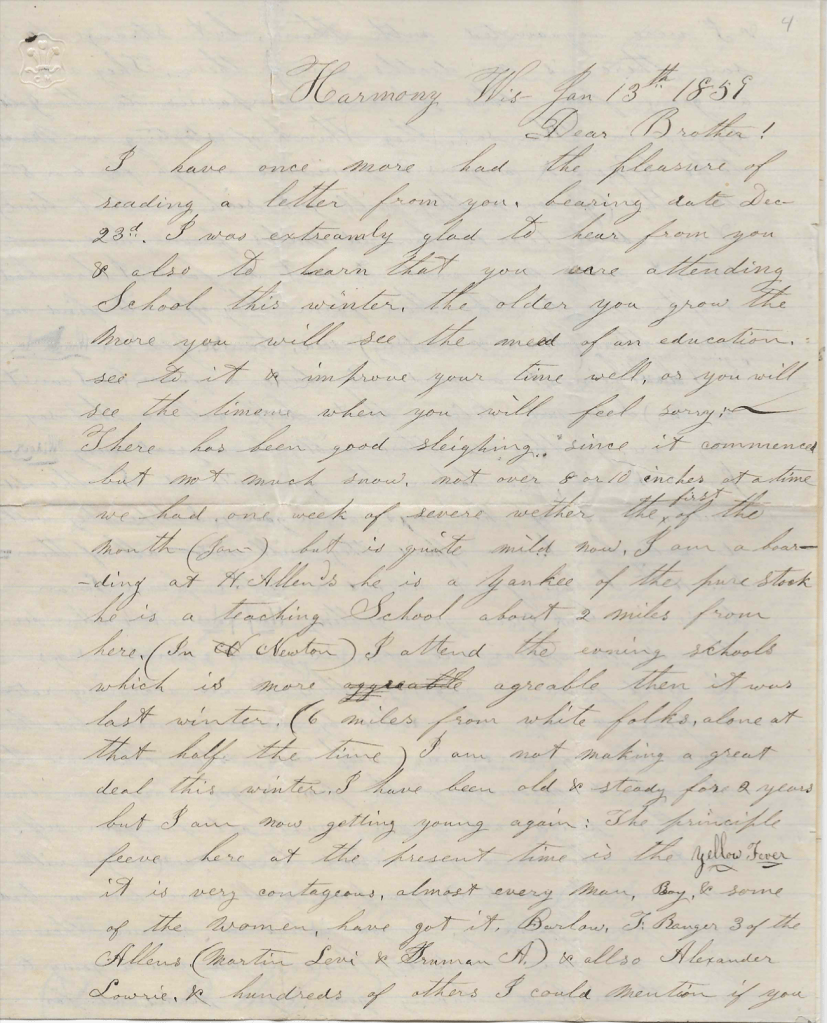 4
Harmony Wis Jan 13th 1859
Dear Brother!
I have once more had the pleasure of
reading a letter from you, bearing date Dec
23d. I was extreamly glad to hear from you
& also to learn that you are attending
School this winter, the older you grow the
more you will see the need of an education.
see to it & improve your time well, or you will
see the time when you will feel sorry;
There has been good sleighing, since it commenced
but not much snow, not over 8 or 10 inches at a time
we had one week of severe wether the first of the
month (Jan) but is quite mild now, I am a boar-
-ding at H. Allen's he is a Yankee of the pure stock
he is a teaching School about 2 miles from
here, (In Newton) I attend the evning schools
which is more aggreable agreable then it was
last winter, (6 miles from white folks, alone at
that half the time) I am not making a great
deal this winter, I have been old & steady fore 2 years
but I am now getting young again: The principle
feeve here at the present time is the Yellow Fever
it is very contageous, almost every Man, Boy, & some
of the Women, have got it. Barlow, F. Banger 3 of the
Allens (Martin Levi & Truman A.) & allso Alexander
Lowrie, & hundreds of others I could mention if you